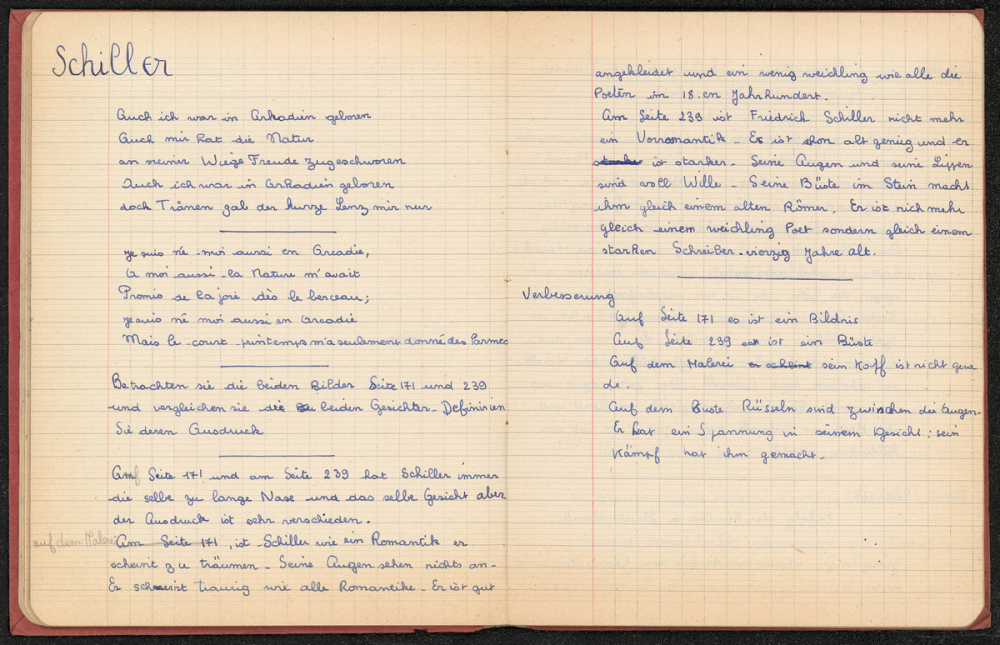 Schiller
Auch ich war in Arkadien geboren
Auch mir hat die Natur
an meiner Wiege Freude zugeschworen
Auch ich war in Arkadien geboren
doch Tränen gab der kurze Lenz mir nur
je suis né - moi aussi en Arcadie,
A moi aussi - la Nature m'avait
Promis de la joie dès le berceau ;
je suis né moi aussi en Arcadie
Mais le court printemps m'a seulement donné des larmes
Betrachten sie die beiden Bilder Seite 171 und 239
und vergleichen sie die beiden Gesichter - Definieren
Sie deren Ausdruck
Auf Seite 171 und am Seite 239 hat Schiller immer
die selbe zu lange Nase und das selbe Gesicht aber
der Ausdruck ist sehr verschieden.
auf dem Malerei Am Seite 171, ist Schiller wie ein Romantik er
scheint zu träumen - Seine Augen sehen nichts an -
Er scheint traurig wie alle Romantike - Er ist gut
angekleidet und ein wenig weichling wie alle die
Poeten im 18.en Jahrhundert.
Am Seite 239 ist Friedrich Schiller nicht mehr
ein Vorromantik - Er ist shon alt genug und er
ist starker - Seine Augen und seine Lippen
sind voll Wille - Seine Büste im Stein macht
ihm gleich einem alten Römer. Er ist nich mehr
gleich einem weichling Poet sondern gleich einem
starken Schreiber - vierzig Jahre alt.
Verbesserung
Auf Seite 171 es ist ein Bildnis
Auf Seite 239 ist ein Büste
Auf dem Malerei er scheint sein Kopf ist nicht gera
de.
Auf dem Buste Rüsseln sind zwischen die Augen -
Er hat ein Spannung in seinem Gesicht ; sein
Kämpf hat ihm gemacht.